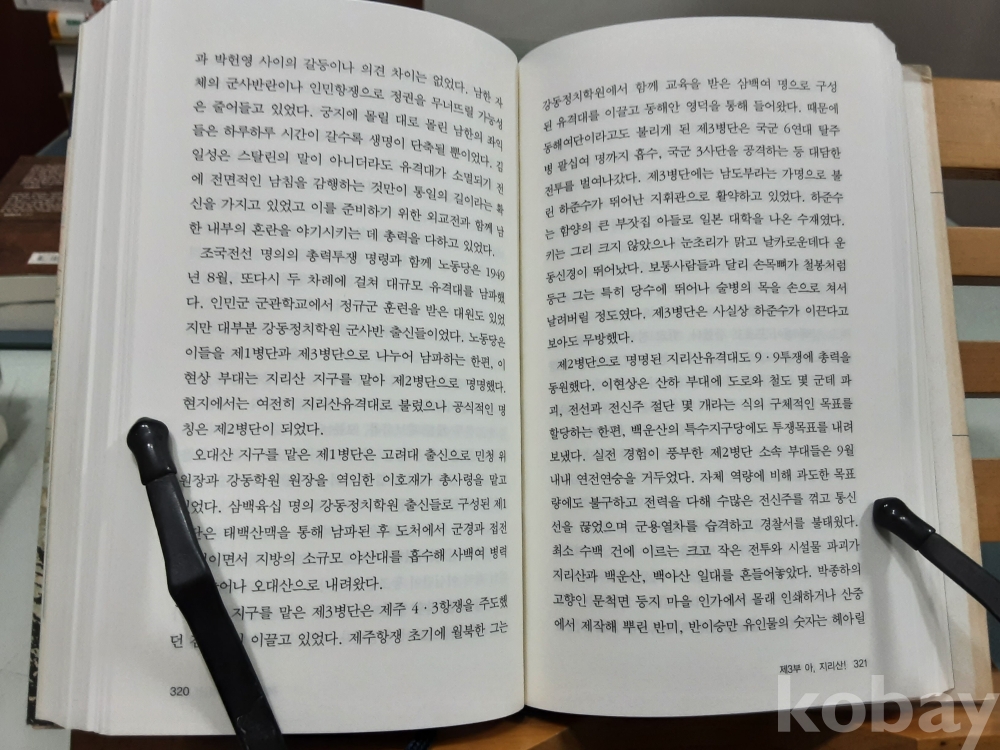 과 박헌영 사이의 갈등이나 의견 차이는 없었다. 남한 자
체의 군사반란이나 인민항쟁으로 정권을 무너뜨릴 가능성
은 줄어들고 있었다. 궁지에 몰릴 대로 몰린 남한의 좌익
들은 하루하루 시간이 갈수록 생명이 단축될 뿐이었다. 김
일성은 스탈린의 말이 아니더라도 유격대가 소멸되기 전
에 전면적인 남침을 감행하는 것만이 통일의 길이라는 확
신을 가지고 있었고 이를 준비하기 위한 외교전과 함께 남
한 내부의 혼란을 야기시키는 데 총력을 다하고 있었다.
조국전선 명의의 총력투쟁 명령과 함께 노동당은 1949
년 8월, 또다시 두 차례에 걸쳐 대규모 유격대를 남파했
다. 인민군 군관학교에서 정규군 훈련을 받은 대원도 있었
지만 대부분 강동정치학원 군사반 출신들이었다. 노동당은
이들을 제1병단과 제3병단으로 나누어 남파하는 한편, 이
현상 부대는 지리산 지구를 맡아 제2병단으로 명명했다.
현지에서는 여전히 지리산유격대로 불렸으나 공식적인 명
칭은 제2병단이 되었다.
오대산 지구를 맡은 제1병단은 고려대 출신으로 민청 위
원장과 강동학원 원장을 역임한 이호재가 총사령을 맡고
있었다. 삼백육십 명의 강동정치학원 출신들로 구성된 제1
단은 태백산맥을 통해 남파된 후 도처에서 군경과 접전
이면서 지방의 소규모 야산대를 흡수해 사백여 병력
어나 오대산으로 내려왔다.
지구를 맡은 제3병단은 제주 4·3항쟁을 주도했
던 이끌고 있었다. 제주항쟁 초기에 월북한 그는
320
강동정치학원에서 함께 교육을 받은 삼백여 명으로 구성
된 유격대를 이끌고 동해안 영덕을 통해 들어왔다. 때문에
동해여단이라고도 불리게 된 제3병단은 국군 6연대 탈주
병 팔십여 명까지 흡수, 국군 3사단을 공격하는 등 대담한
전투를 벌여나갔다. 제3병단에는 남도부라는 가명으로 불
린 하준수가 뛰어난 지휘관으로 활약하고 있었다. 하준수
는 함양의 큰 부잣집 아들로 일본 대학을 나온 수재였다.
키는 그리 크지 않았으나 눈초리가 맑고 날카로운데다 운
동신경이 뛰어났다. 보통사람들과 달리 손목뼈가 철봉처럼
둥근 그는 특히 당수에 뛰어나 술병의 목을 손으로 쳐서
날려버릴 정도였다. 제3병단은 사실상 하준수가 이끈다고
보아도 무방했다.
제2병단으로 명명된 지리산유격대도 9·9투쟁에 총력을
동원했다. 이현상은 산하 부대에 도로와 철도 몇 군데 파
괴, 전선과 전신주 절단 몇 개라는 식의 구체적인 목표를
할당하는 한편, 백운산의 특수지구당에도 투쟁목표를 내려
보냈다. 실전 경험이 풍부한 제2병단 소속 부대들은 9월
내내 연전연승을 거두었다. 자체 역량에 비해 과도한 목표
량에도 불구하고 전력을 다해 수많은 전신주를 꺾고 통신
선을 끊었으며 군용열차를 습격하고 경찰서를 불태웠다.
최소 수백 건에 이르는 크고 작은 전투와 시설물 파괴가
지리산과 백운산, 백아산 일대를 흔들어놓았다. 박종하의
고향인 문척면 둥지 마을 인가에서 몰래 인쇄하거나 산중
에서 제작해 뿌린 반미, 반이승만 유인물의 숫자는 헤아릴
제3부 아, 지리산! 321
kobay